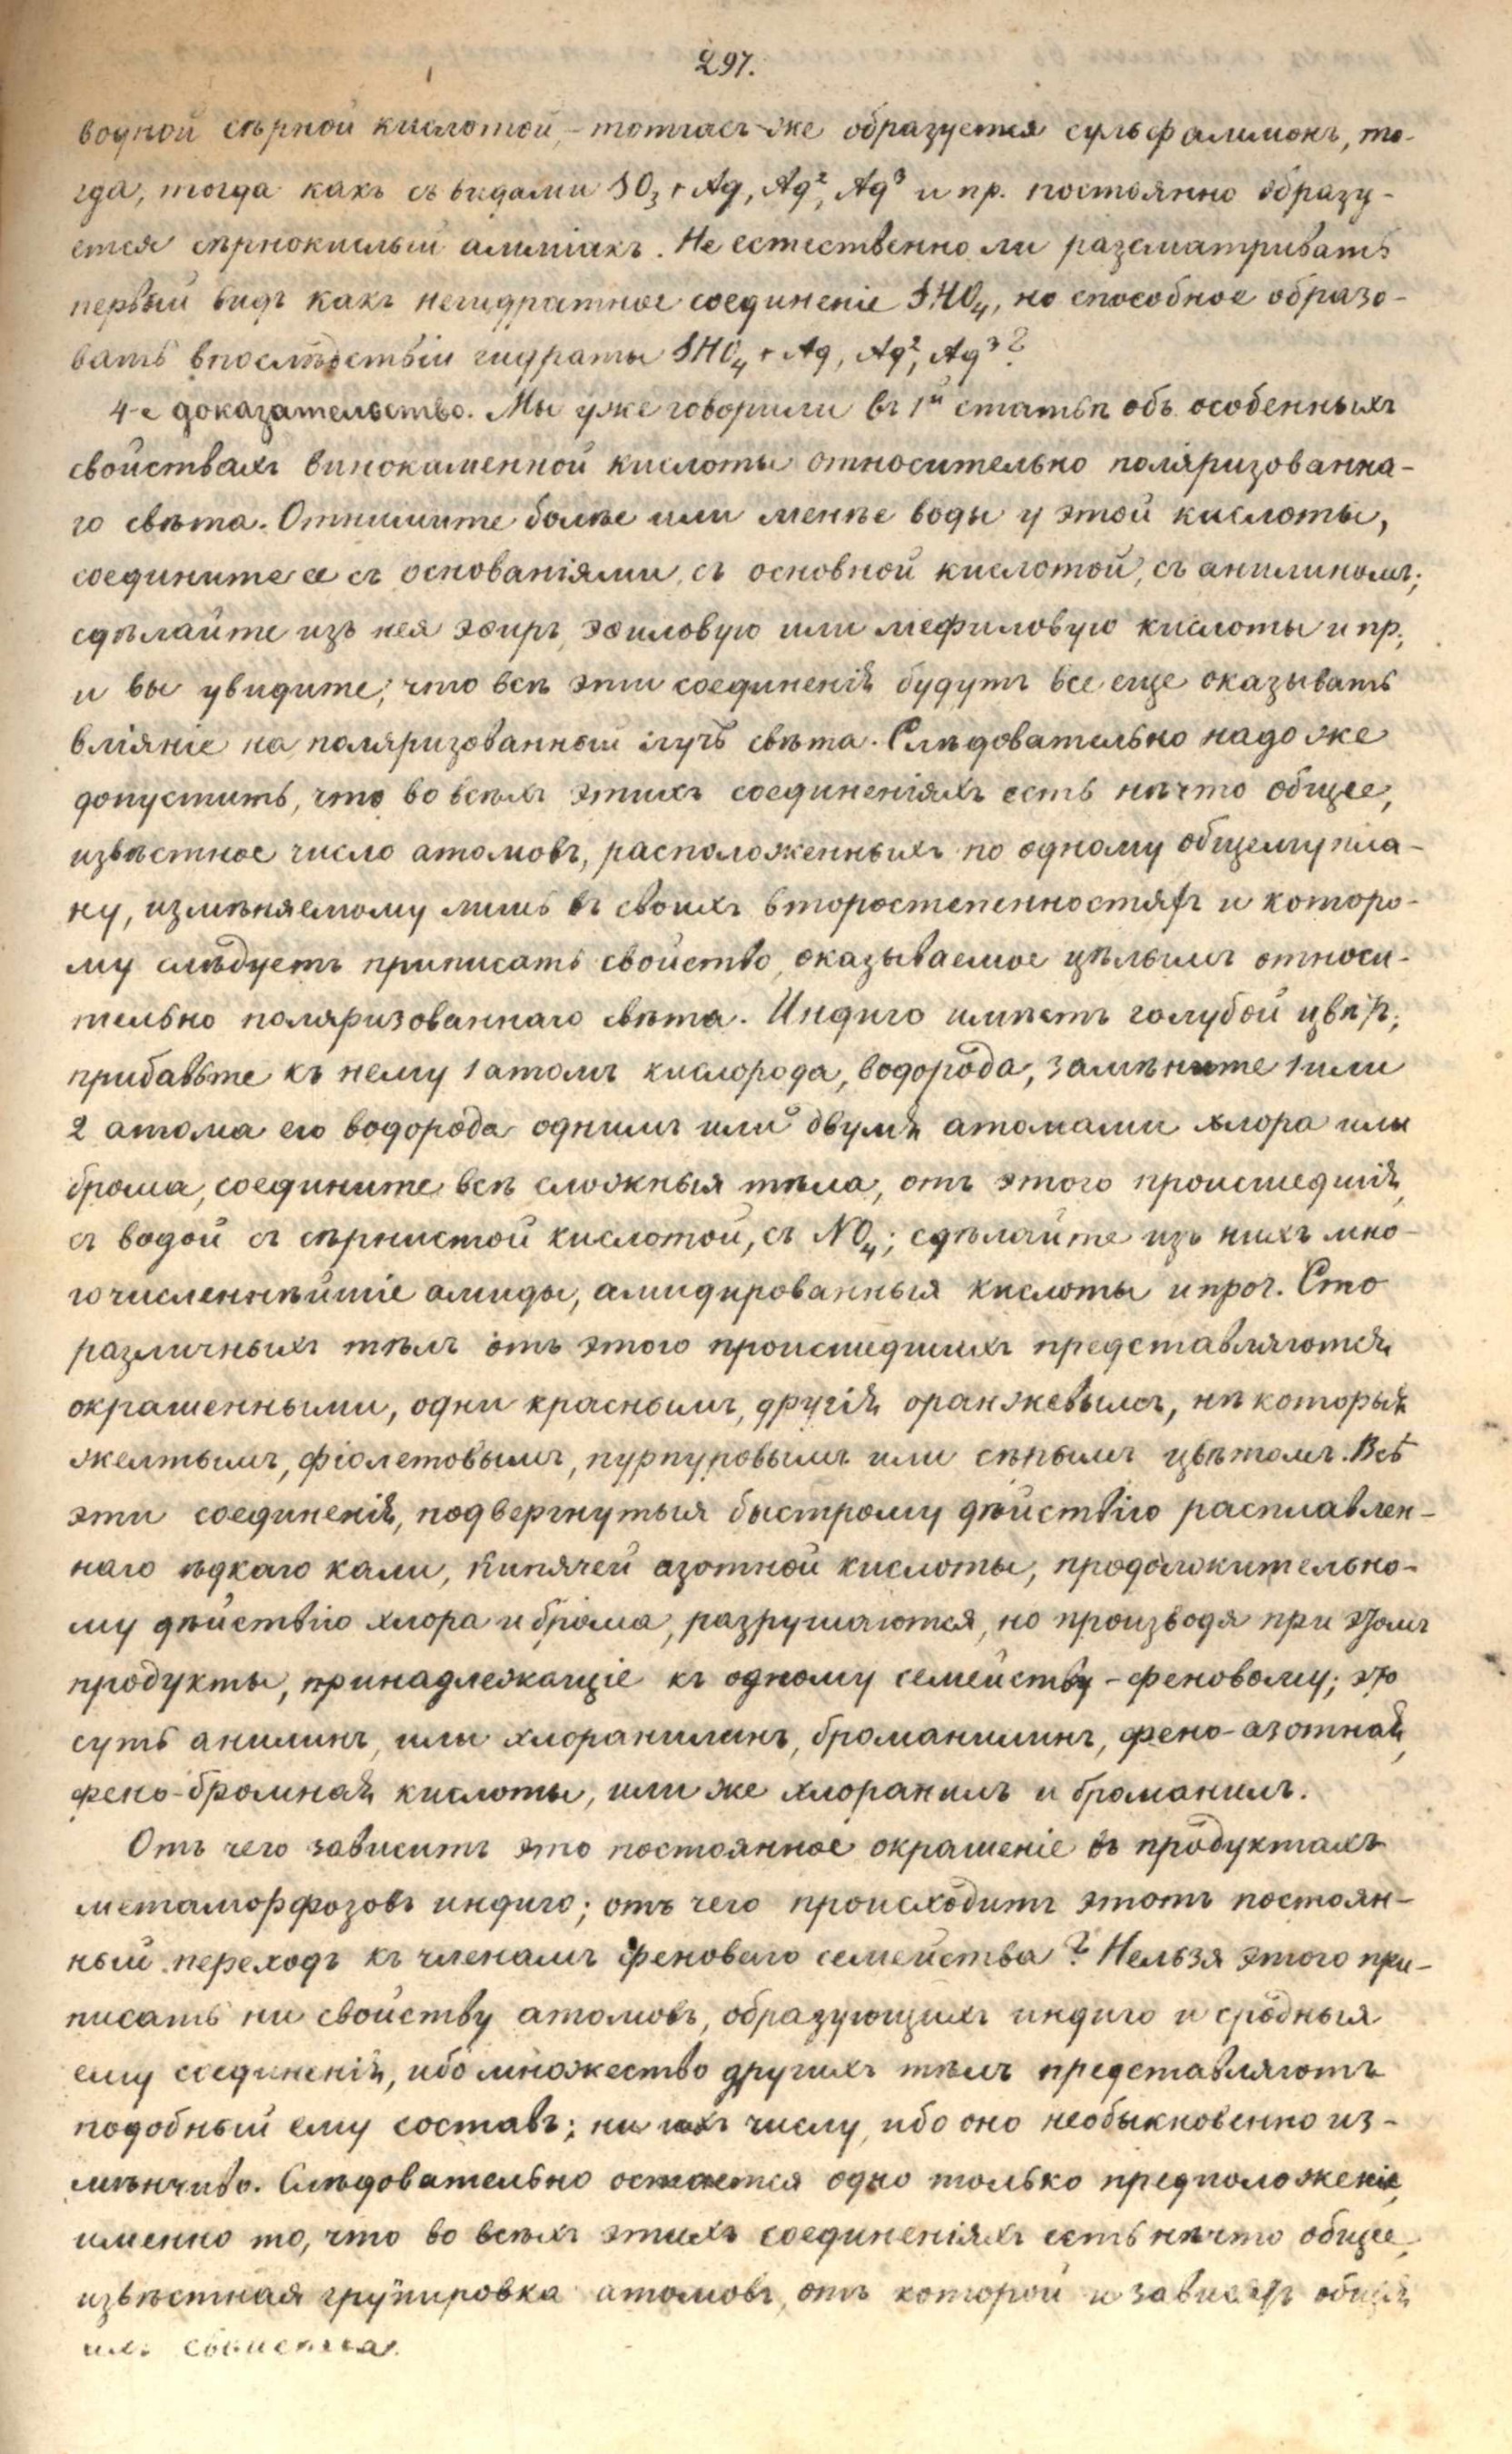 297.
водной сѣрной кислотой, – тотчасъ-же образуется сульфалимонъ, то-
гда, тогда какъ съ видами SO₃ + Aq, Aq², Aq³ и пр. постоянно образу-
ется сѣрнокислый амміакъ. Не естественно ли разсматривать
первый видъ какъ негидратное соединеніе SHO₄, но способное образо-
вать впослѣдствіи гидраты SHO₄ + Aq, Aq², Aq³?
4-е доказательство. Мы уже говорили въ 1й статьѣ объ особенныхъ
свойствахъ винокаменной кислоты относительно поляризованна-
го свѣта. Отнимите болѣе или менѣе воды у этой кислоты,
соедините ее съ основаніями, съ основной кислотой, съ анилиномъ;
сдѣлайте изъ нея эѳиръ, эѳиловую или меѳиловую кислоты и пр.,
и вы увидите, что всѣ эти соединенія будутъ все еще оказывать
вліяніе на поляризованный лучъ свѣта. Слѣдовательно надо же
допустить, что во всѣхъ этихъ соединеніяхъ есть нѣчто общее,
извѣстное число атомовъ, расположенныхъ по одному общему пла-
ну, измѣняемому лишь въ своихъ второстепенностяхъ и которо-
му слѣдуетъ приписать свойство, оказываемое цѣлымъ относи-
тельно поляризованнаго свѣта. Индиго имѣетъ голубой цвѣтъ;
прибавьте къ нему 1 атомъ кислорода, водорода, замѣните 1 или
2 атома его водорода однимъ или двумя атомами хлора или
брома, соедините всѣ сложныя тѣла, отъ этого происшедшія,
съ водой съ сѣрнистой кислотой, съ NO₄; сдѣлайте изъ нихъ мно-
гочисленнѣйшіе амиды, амидированныя кислоты и проч. Сто
различныхъ тѣлъ отъ этого происшедшихъ представляются
окрашенными, одни краснымъ, другія оранжевымъ, нѣкоторыя
желтымъ, фіолетовымъ, пурпуровымъ или сѣрымъ цвѣтомъ. Всѣ
эти соединенія, подвергнутыя быстрому дѣйствію расплавлен-
наго ѣдкаго кали, кипячей азотной кислоты, продолжительно-
му дѣйствію хлора и брома, разрушаются, но производя при этомъ
продукты, принадлежащіе къ одному семейству – феновому; это
суть анилинъ, или хлоранилинъ, броманилинъ, фено-азотная,
фено-бромная кислоты, или же хлоранилъ и броманилъ.
Отъ чего зависитъ это постоянное окрашеніе въ продуктахъ
метаморфозовъ индиго; отъ чего происходитъ этотъ постоян-
ный переходъ къ членамъ феноваго семейства? Нельзя этого при-
писать ни свойству атомовъ, образующихъ индиго и сродныя
ему соединенія, ибо множество другихъ тѣлъ представляютъ
подобный ему составъ; ни ихъ числу, ибо оно необыкновенно из-
мѣнчиво. Слѣдовательно остается одно только предположеніе,
именно то, что во всѣхъ этихъ соединеніяхъ есть нѣчто общее,
извѣстная групировка атомовъ, отъ которой и зависятъ общія
ихъ свойства.